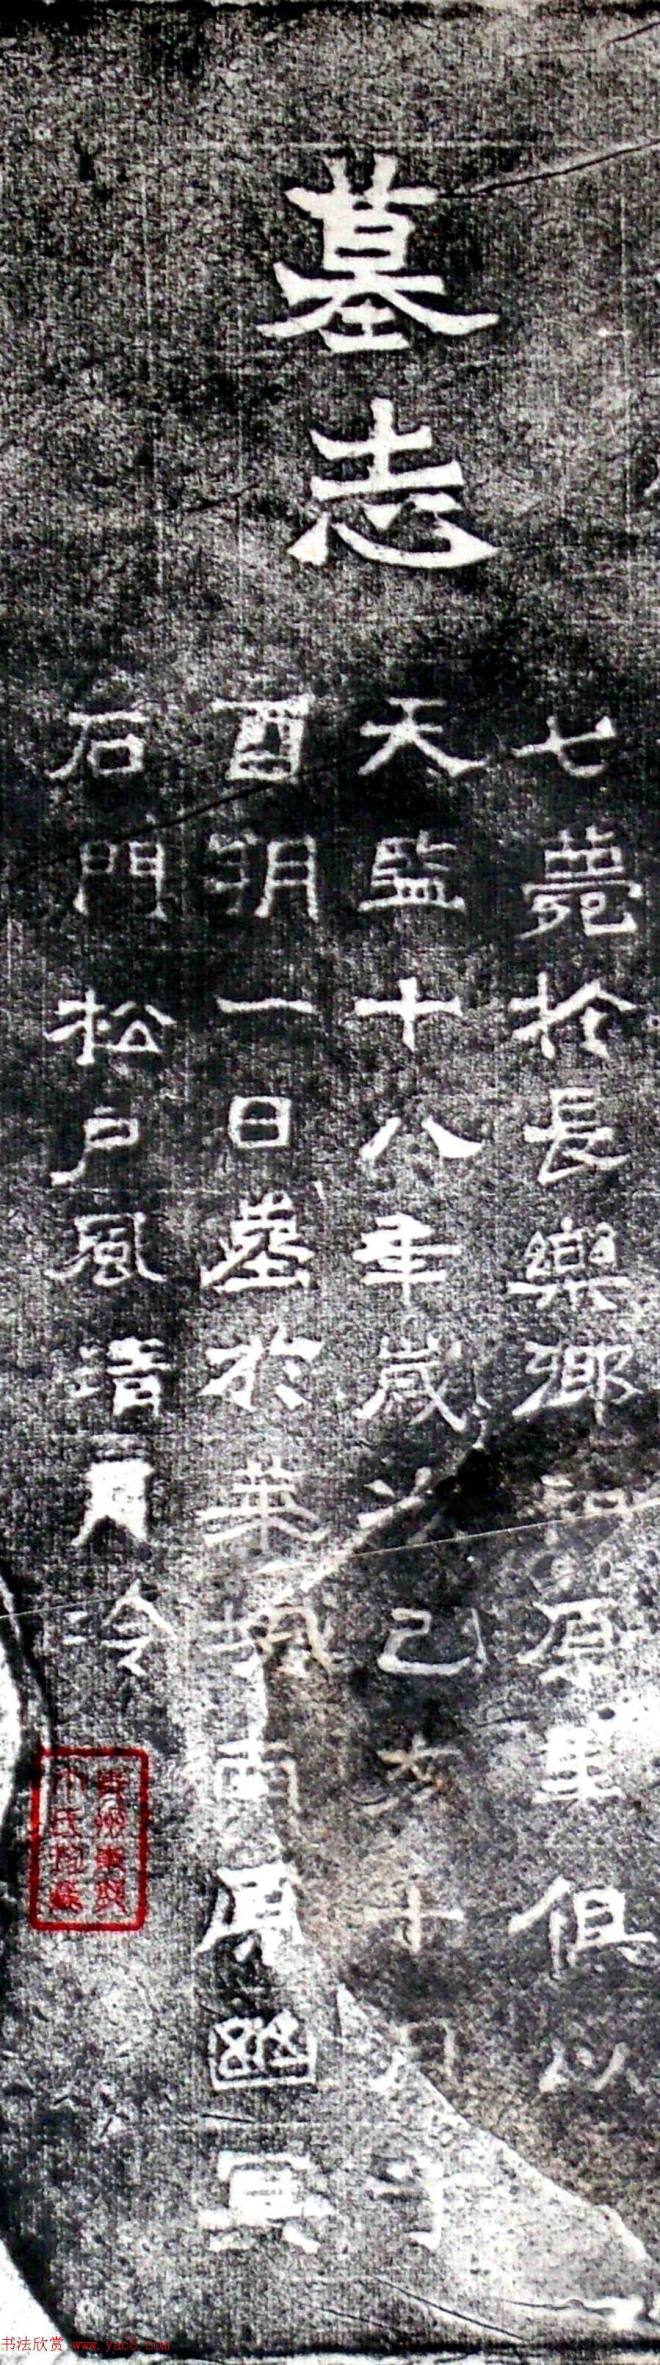 墓志
七薨於長樂鄉原里俱以
天監十八年歲次己亥十月丁
酉朔一日塟於萊城南原幽冥
石門松戶風清月冷
书法欣赏 www.yac8.com